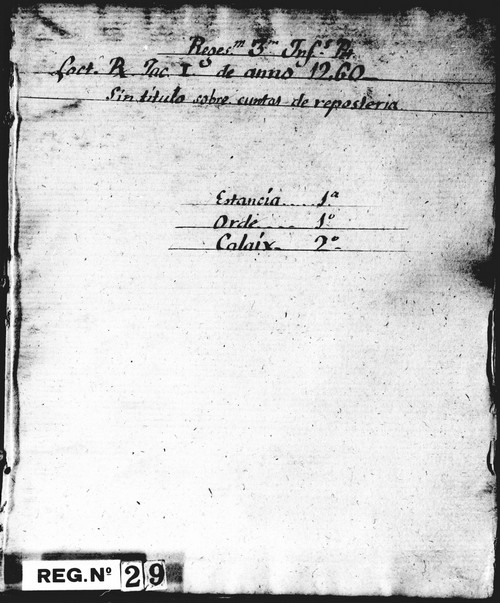 3.m Inf.s
Jac. I.º de anno 1260
Sin titulo sobre cuntas de reposteria
Estancia..... 1.ª
Orde..... 1.º
Calaix. 2.º
REG. Nº 29